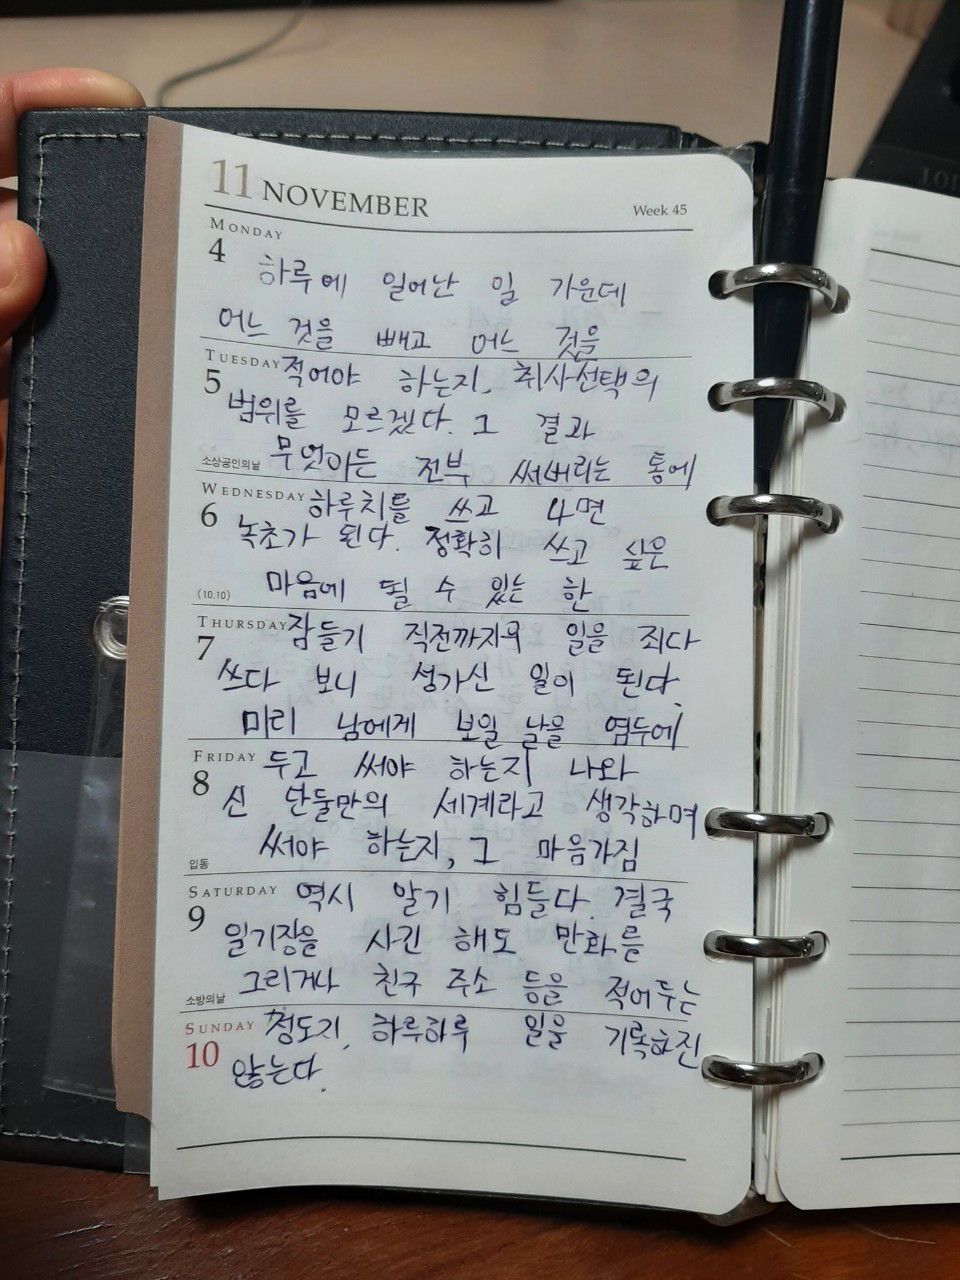 11 NOVEMBER
Week 45
MONDAY
4
하루에 일어난 일 가운데
어느 것을 빼고 어느 것을
TUESDAY 적어야 하는지, 취사선택의
5
범위를 모르겠다. 그 결과
소상공인의날 무엇이든 전부 써버리는 통에
WEDNESDAY 하루치를 쓰고 나면
6
녹초가 된다. 정확히 쓰고 싶은
(10.10) 마음에 될 수 있는 한
THURSDAY 잠들기 직전까지의 일을 죄다
7
쓰다 보니 성가신 일이 된다.
미리 남에게 보일 날을 염두에
FRIDAY 두고 써야 하는지 나와
8
신 단둘만의 세계라고 생각하며
입동 써야 하는지, 그 마음가짐
SATURDAY 역시 알기 힘들다. 결국
9
일기장을 사긴 해도 만화를
그리거나 친구 주소 등을 적어두는
소방의날
SUNDAY 정도지, 하루하루 일을 기록하진
10
않는다.